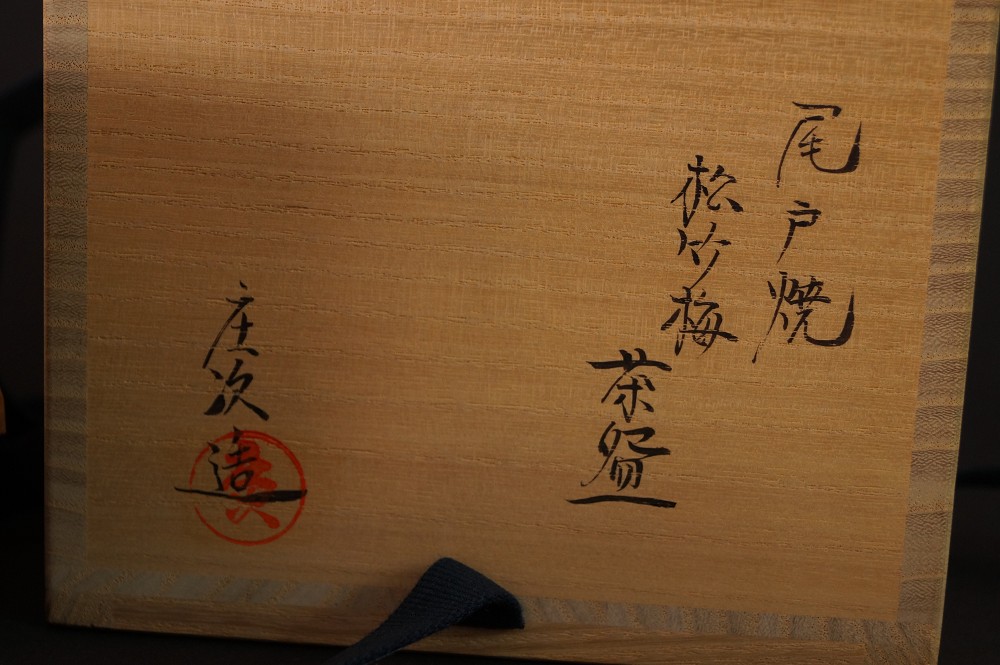 尾戸焼
松竹梅
茶盌
庄次造